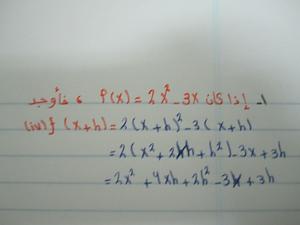 1- إذا كان f(x) = 2x² - 3x ، فأوجد
(iv) f(x+h) = 2(x+h)² - 3(x+h)
= 2(x² + 2xh + h²) - 3x + 3h
= 2x² + 4xh + 2h² - 3x + 3h